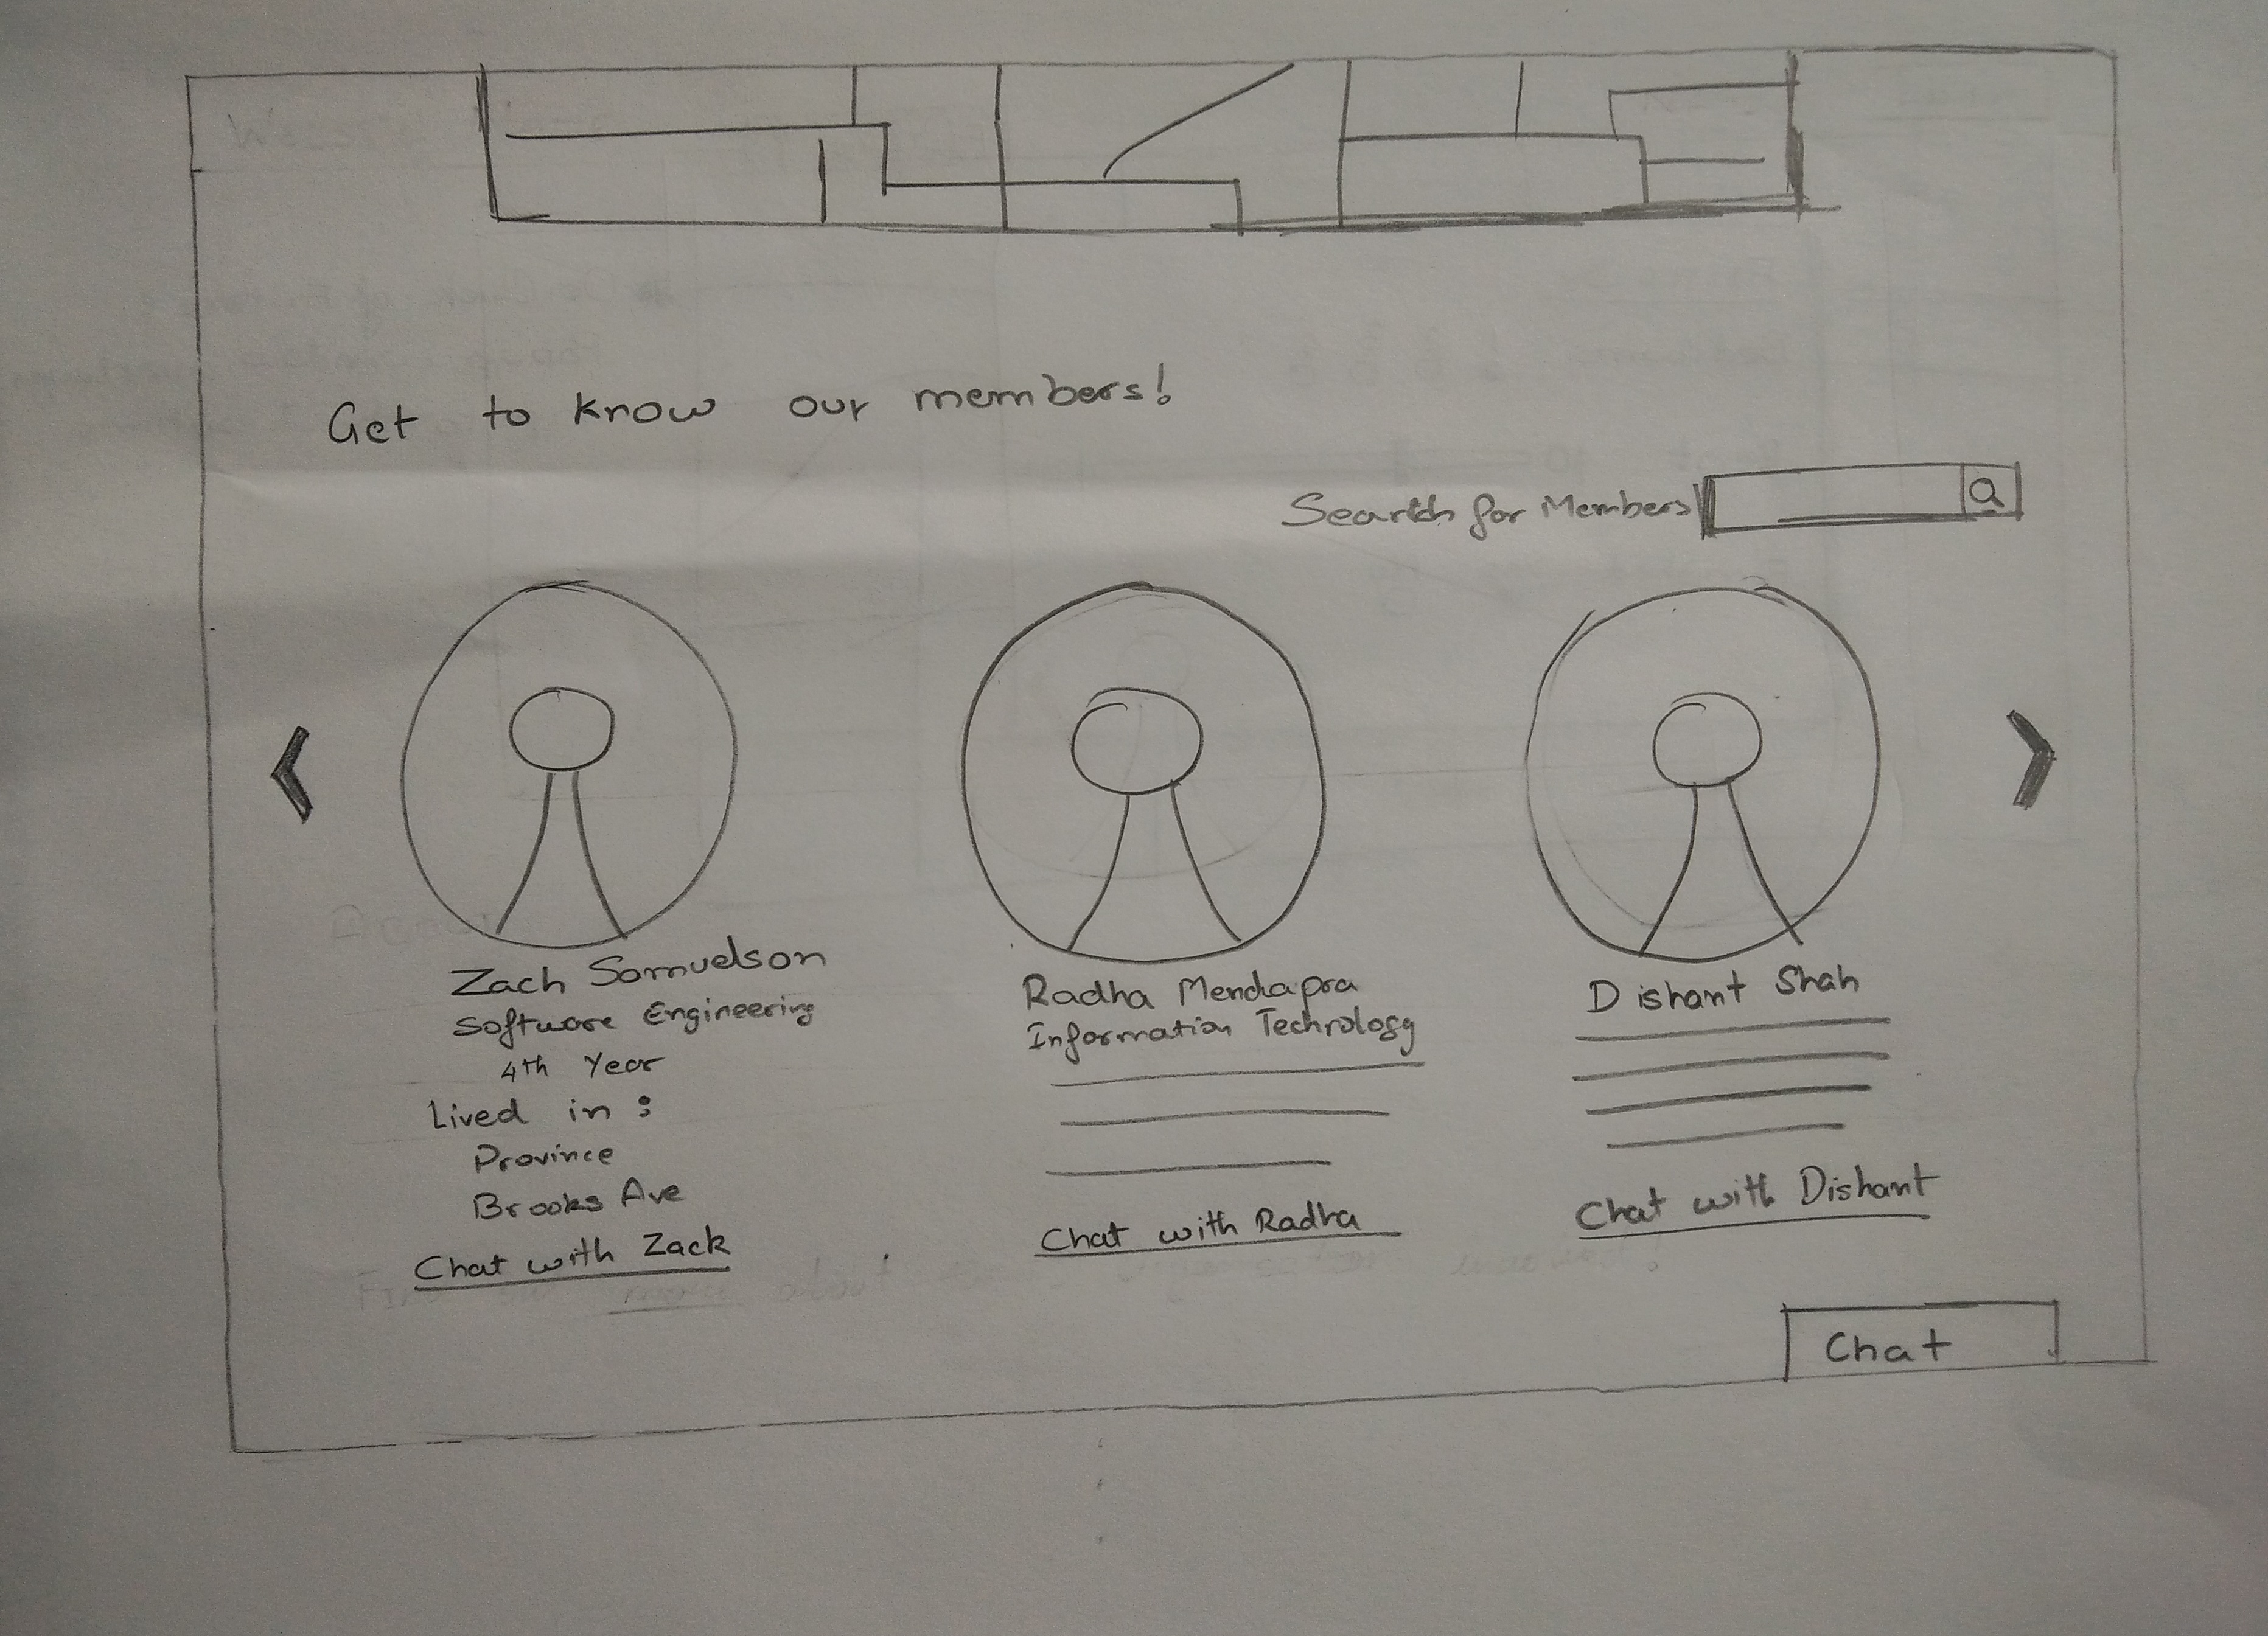 Get to know our members!
Search for Members
Zach Samuelson
Software Engineering
4th Year
Lived in :
Province
Brooks Ave
Chat with Zack
Radha Mendapra
Information Technology
Chat with Radha
Dishant Shah
Chat with Dishant
Chat